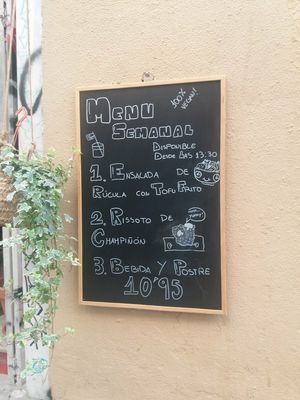 MENU
SEMANAL
100% VEGAN!
DISPONIBLE
DESDE LAS 13:30
1. ENSALADA DE
RÚCULA CON TOFU FRITO
2. RISSOTO DE
CHAMPIÑÓN
YUMMY!
3. BEBIDA Y POSTRE
10'95